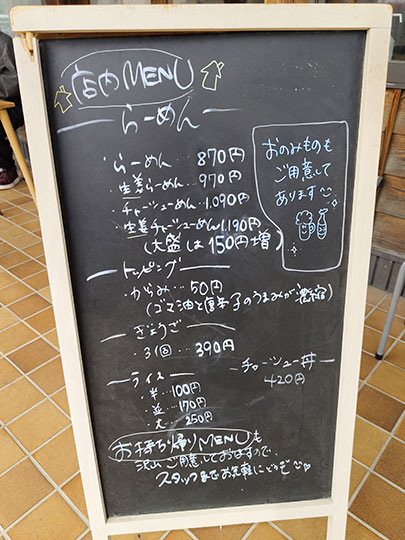 店内MENU
らーめん
らーめん…870円
生姜らーめん…970円
チャーシューめん…1,090円
生姜チャーシューめん1,190円
(大盛は150円増)
おのみものも
ご用意して
あります
トッピング
・からみ…50円
(ゴマ油と唐辛子のうまみが
ぎょうざ
・3個…390円
ライス
・半…100円
・並…170円
・大…250円
チャーシュー丼
420円
お持ち帰りMENUも
沢山ご用意しておりますので、
スタッフまでお気軽にどうぞ